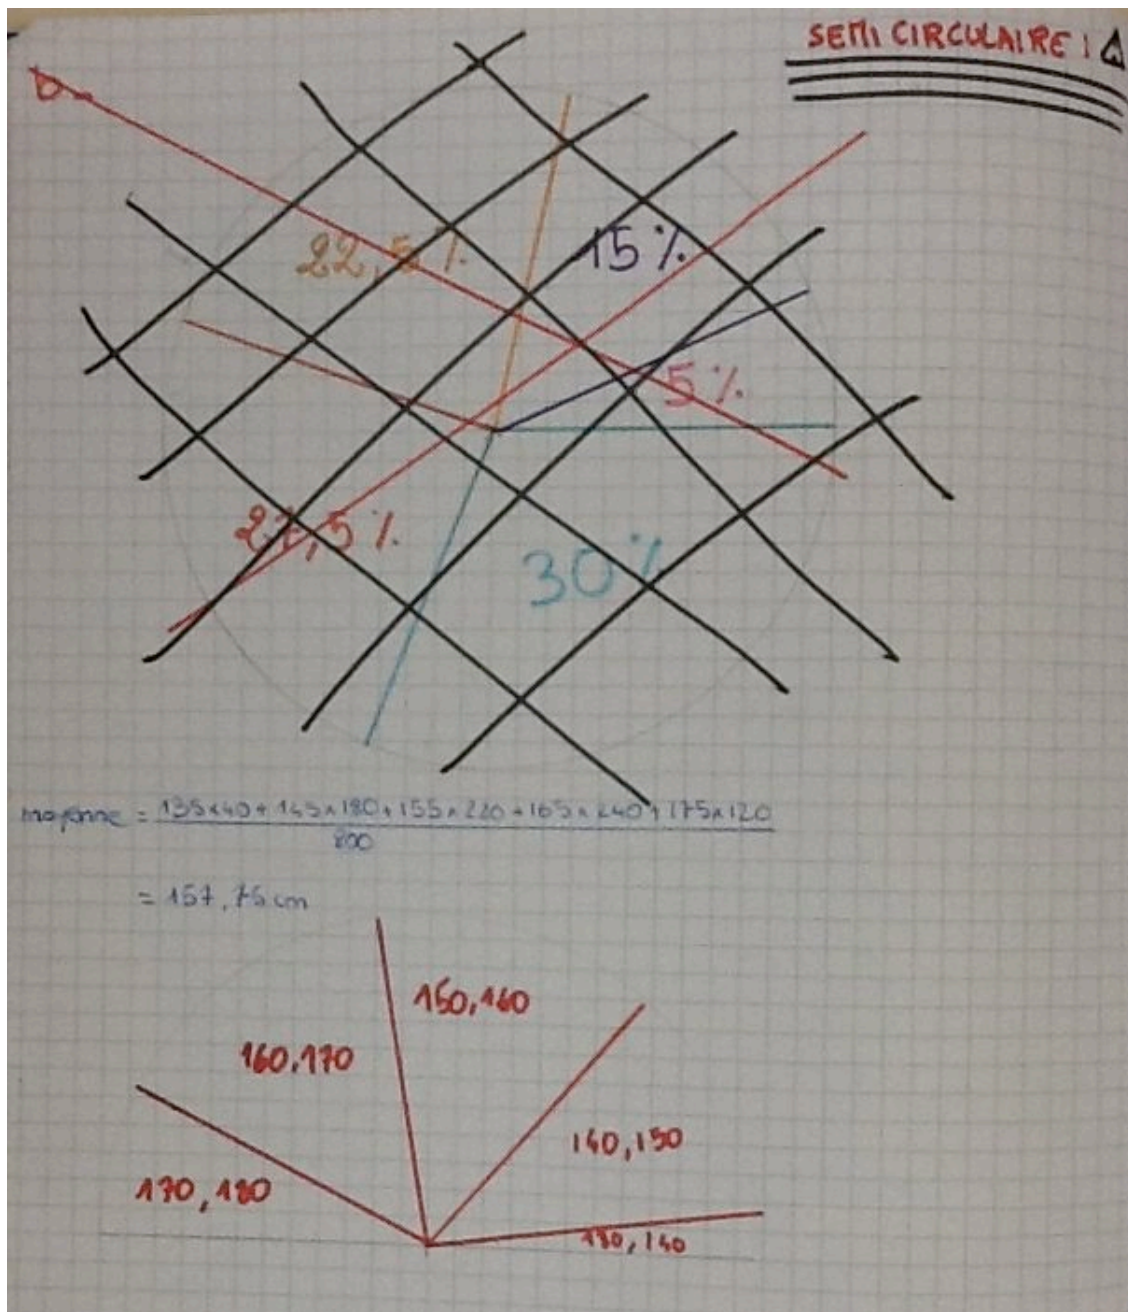 SEMI CIRCULAIRE : ⚠
22,5 %
15 %
5 %
27,5 %
30 %
moyenne = 135x40 + 145x180 + 155x220 + 165x240 + 175x120
800
= 157,75 cm
150,160
160,170
140,150
170,180
130,140